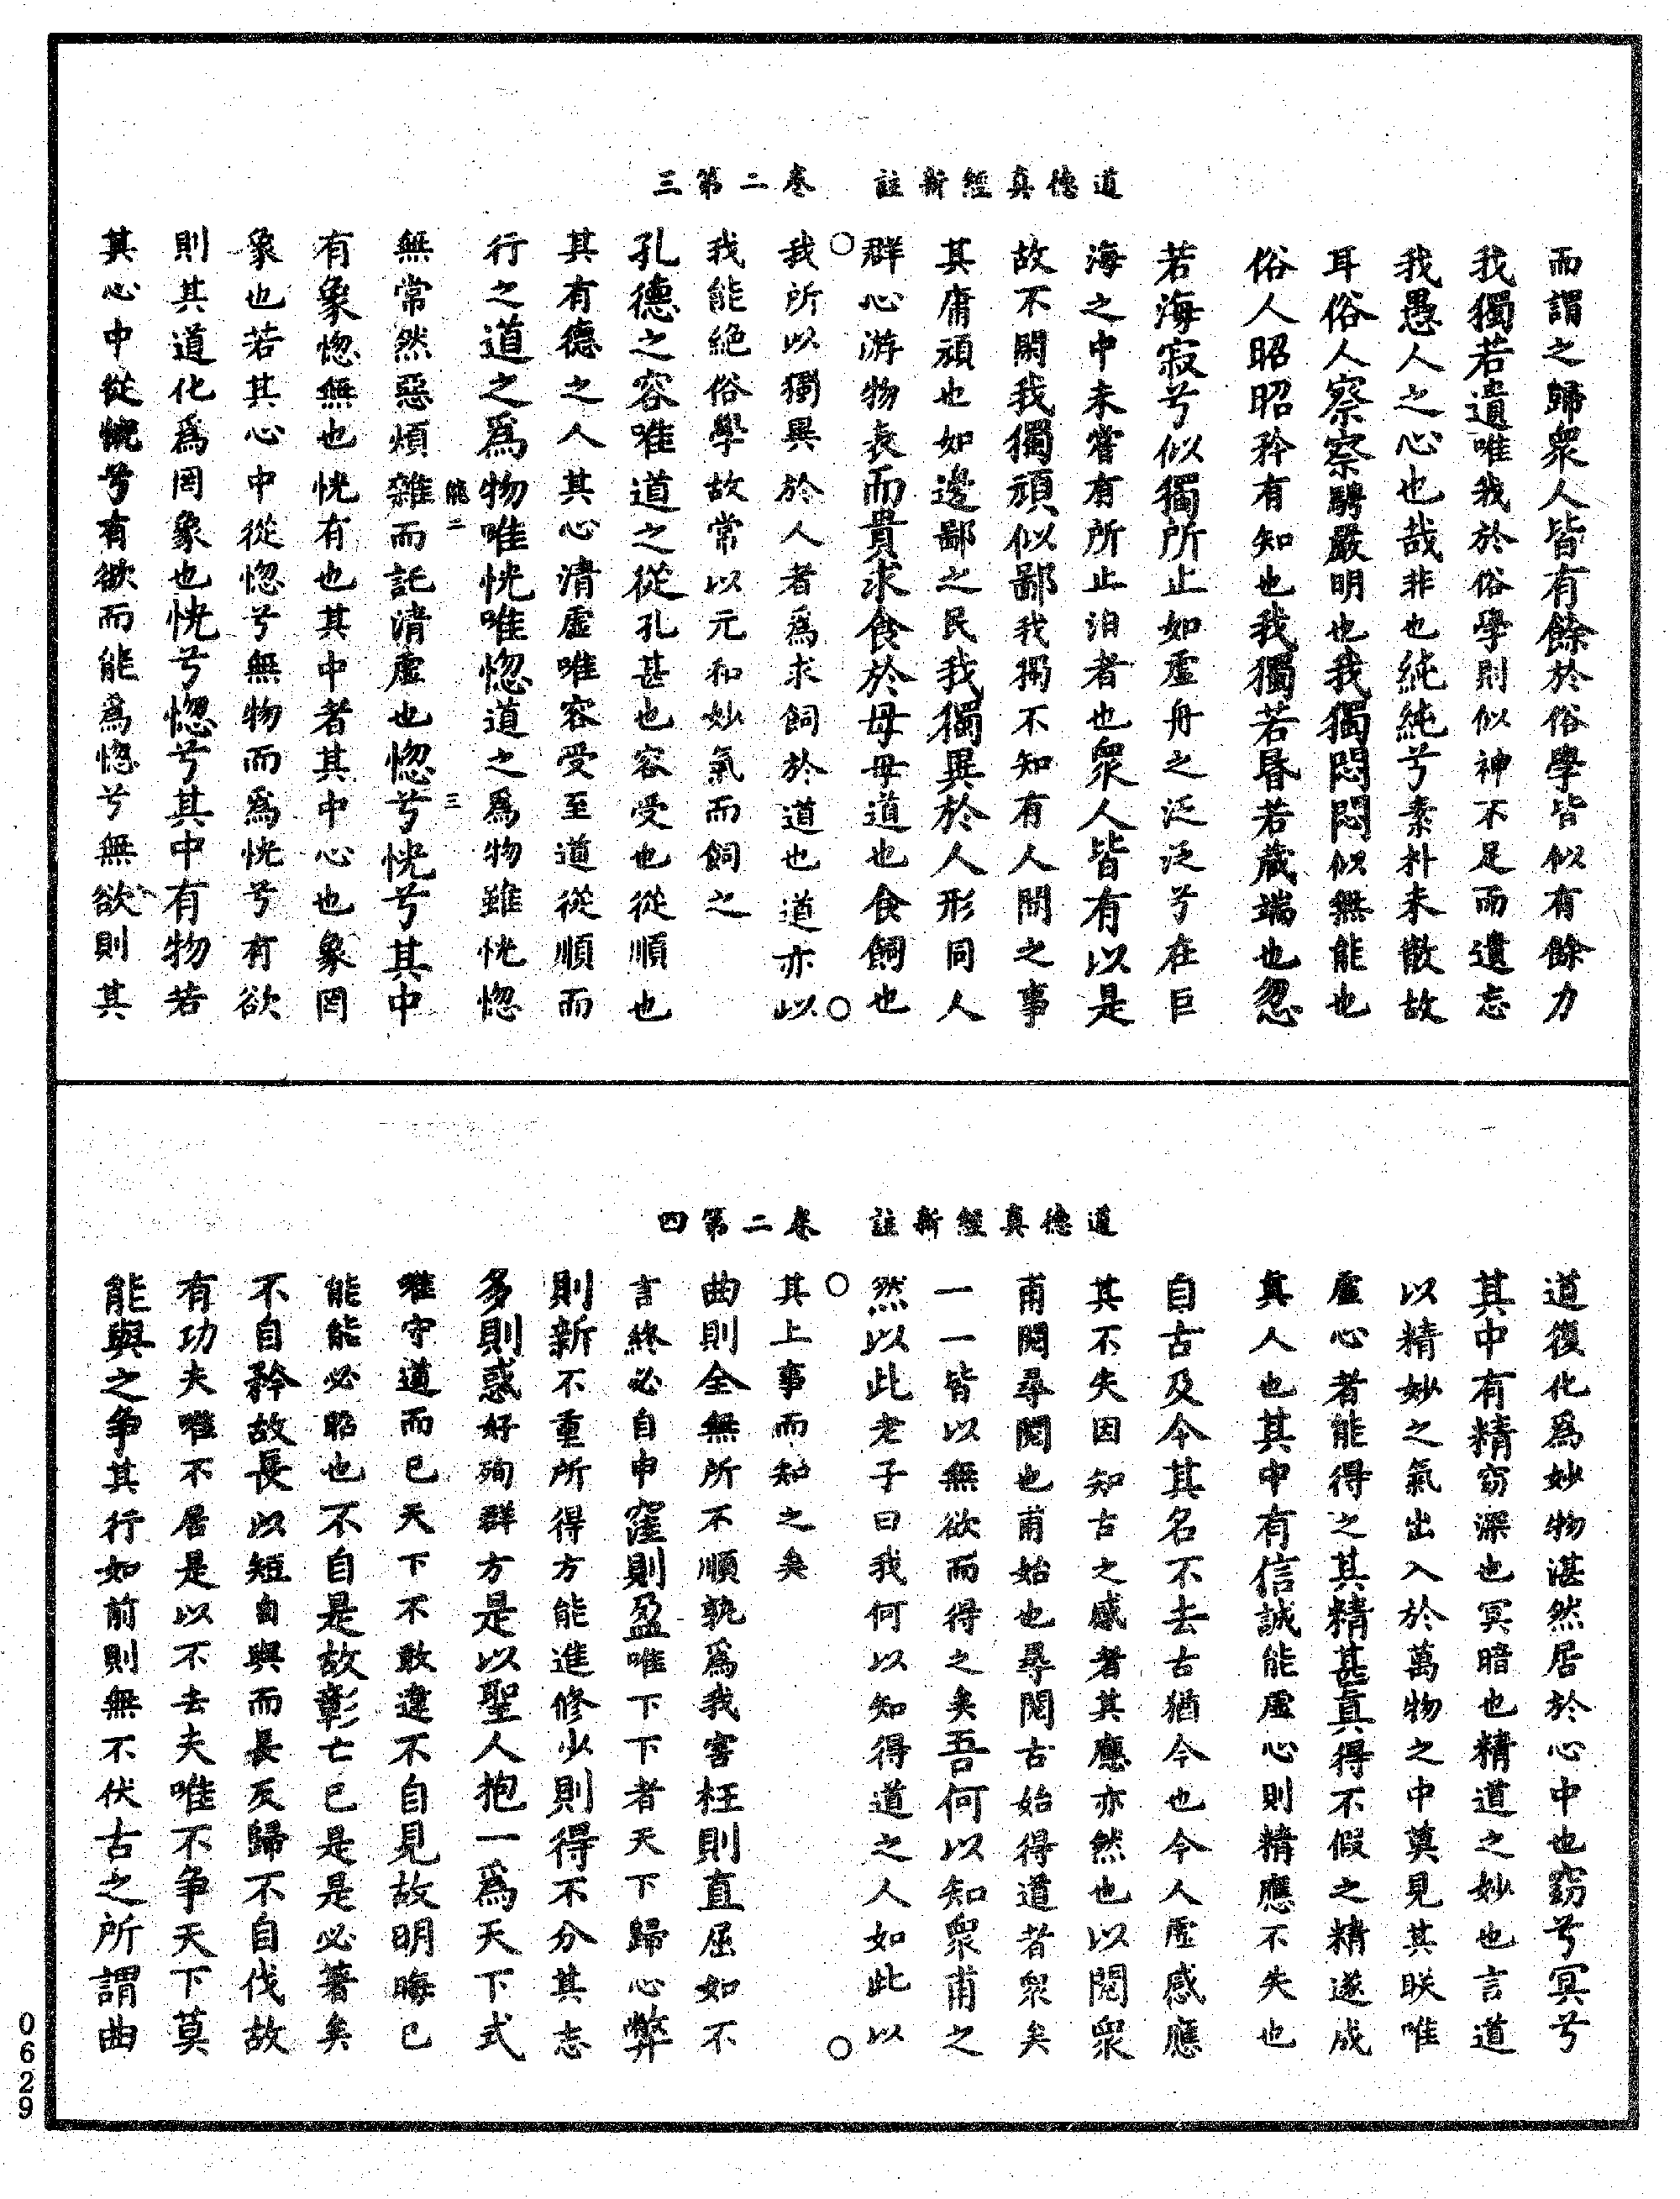 道德真經新註　卷二第三
而謂之歸衆人皆有餘於俗學皆似有餘力
我獨若遺唯我於俗學則似神不足而遺忘
我愚人之心也哉非也純純兮素朴未散故
耳俗人察察騁嚴明也我獨悶悶似無能也
俗人昭昭矜有知也我獨若昬若藏端也忽
若海寂兮似獨所止如虛舟之泛泛兮在巨
海之中未嘗有所止泊者也衆人皆有以是
故不閑我獨頑似鄙我獨不知有人間之事
其庸頑也如邊鄙之民我獨異於人形同人
群心游物表而貴求食於母母道也食飼也
我所以獨異於人者爲求飼於道也道亦以
我能絶俗學故常以元和妙氣而飼之
孔德之容唯道之從孔甚也容受也從順也
其有德之人其心清虛唯容受至道從順而
行之道之爲物唯恍唯惚道之爲物雖恍惚
能二　三
無常然惡煩雜而託清虛也惚兮恍兮其中
有象惚無也恍有也其中者其中心也象罔
象也若其心中從惚兮無物而爲恍兮有欲
則其道化爲罔象也恍兮惚兮其中有物若
其心中從恍兮有欲而能爲惚兮無欲則其
道德真經新註　卷二第四
道復化爲妙物湛然居於心中也窈兮冥兮
其中有精窈深也冥暗也精道之妙也言道
以精妙之氣出入於萬物之中莫見其眹唯
虛心者能得之其精甚真得不假之精遂成
真人也其中有信誠能虛心則精應不失也
自古及今其名不去古猶今也今人虛感應
其不失因知古之感者其應亦然也以閱衆
甫閱尋閱也甫始也尋閱古始得道者衆矣
一一皆以無欲而得之矣吾何以知衆甫之
然以此老子曰我何以知得道之人如此以
其上事而知之矣
曲則全無所不順孰爲我害枉則直屈如不
言終必自申窪則盈唯下下者天下歸心弊
則新不重所得方能進修少則得不分其志
多則惑好殉群方是以聖人抱一爲天下式
唯守道而已天下不敢違不自見故明晦已
能能必昭也不自是故彰亡已是是必著矣
不自矜故長以短自與而長反歸不自伐故
有功夫唯不居是以不去夫唯不爭天下莫
能與之爭其行如前則無不伏古之所謂曲
0629